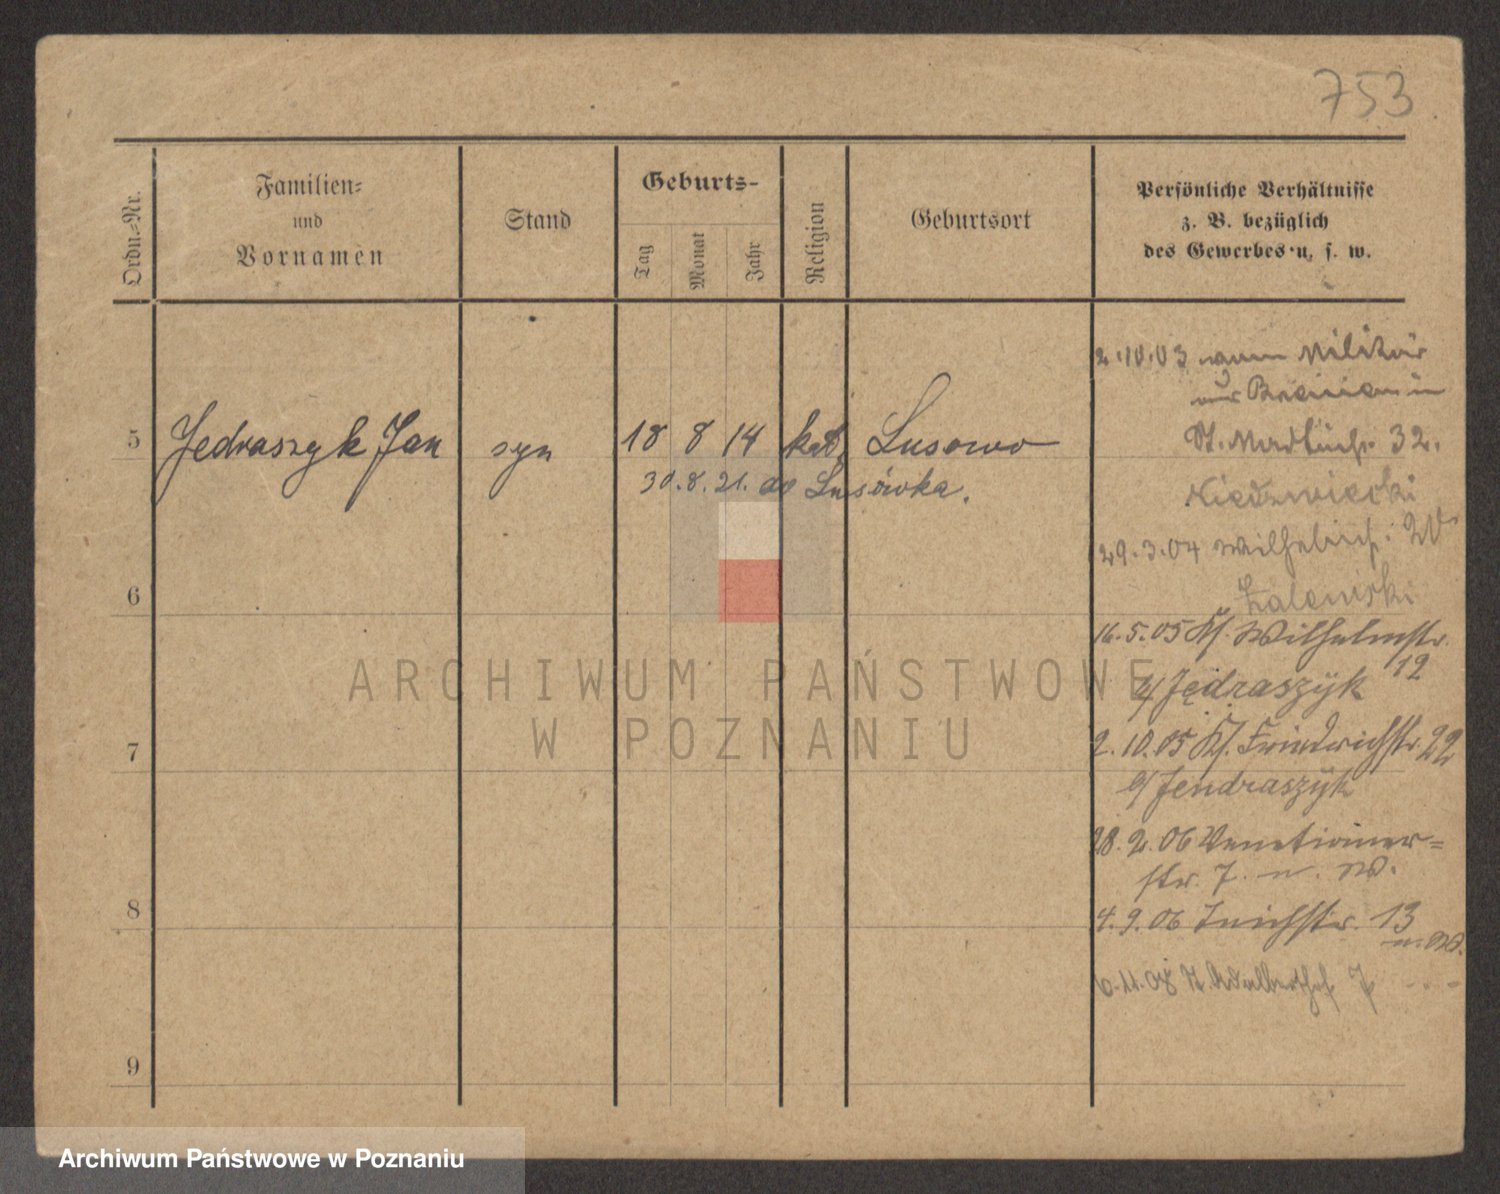 753
Familien-
und
Vornamen
Ordn.-Nr.
Stand
Geburts-
Tag
Monat
Jahr
Religion
Geburtsort
Persönliche Verhältnisse
z. B. bezüglich
des Gewerbes u. s. w.
2.10.03 vom Militär
5 Jedraszyk Jan syn 18 8 14 kat. Lusowo
St. Martinstr. 32.
30.8.21. do Lusówka.
Niedzwiecki
29.3.04 Wilhelmstr. 20
Zalewski
6
16.5.05 Kl. Wilhelmstr.
12
b/ Jędraszyk
2.10.05 Kl. Friedrichstr. 22
b/ Jendraszyk
7
28.2.06 Venetianer=
str. 7. u. W.
8
4.9.06 Teichstr. 13
u. W.
6.11.08 St. Adalberthof 7
9
ARCHIWUM PAŃSTWOWE
W POZNANIU
Archiwum Państwowe w Poznaniu